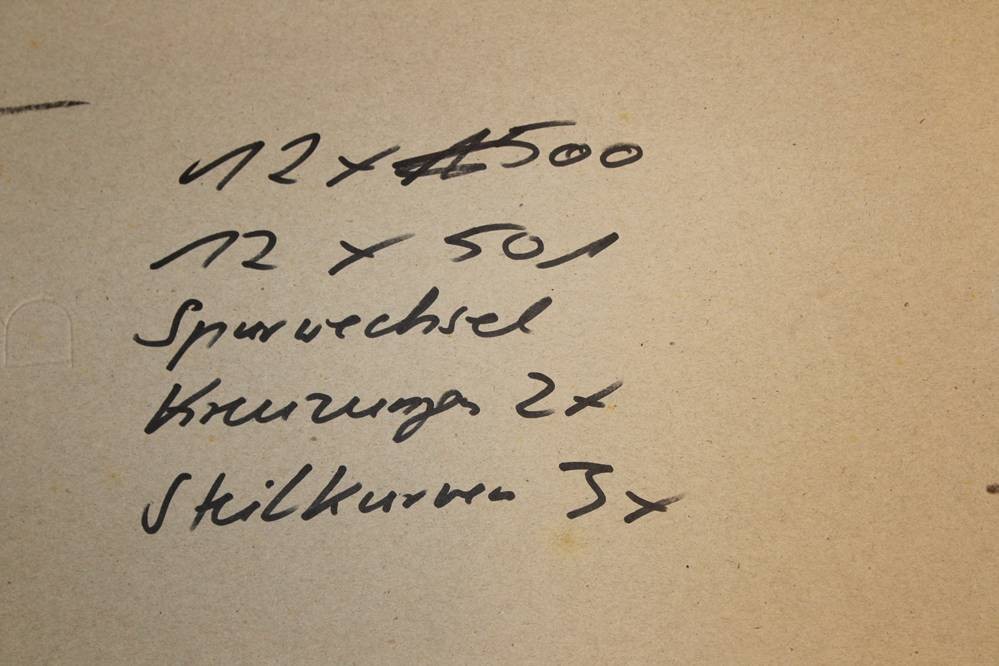 12 x 500
12 x 501
Spurwechsel
Kreuzungen 2x
Steilkurven 3x